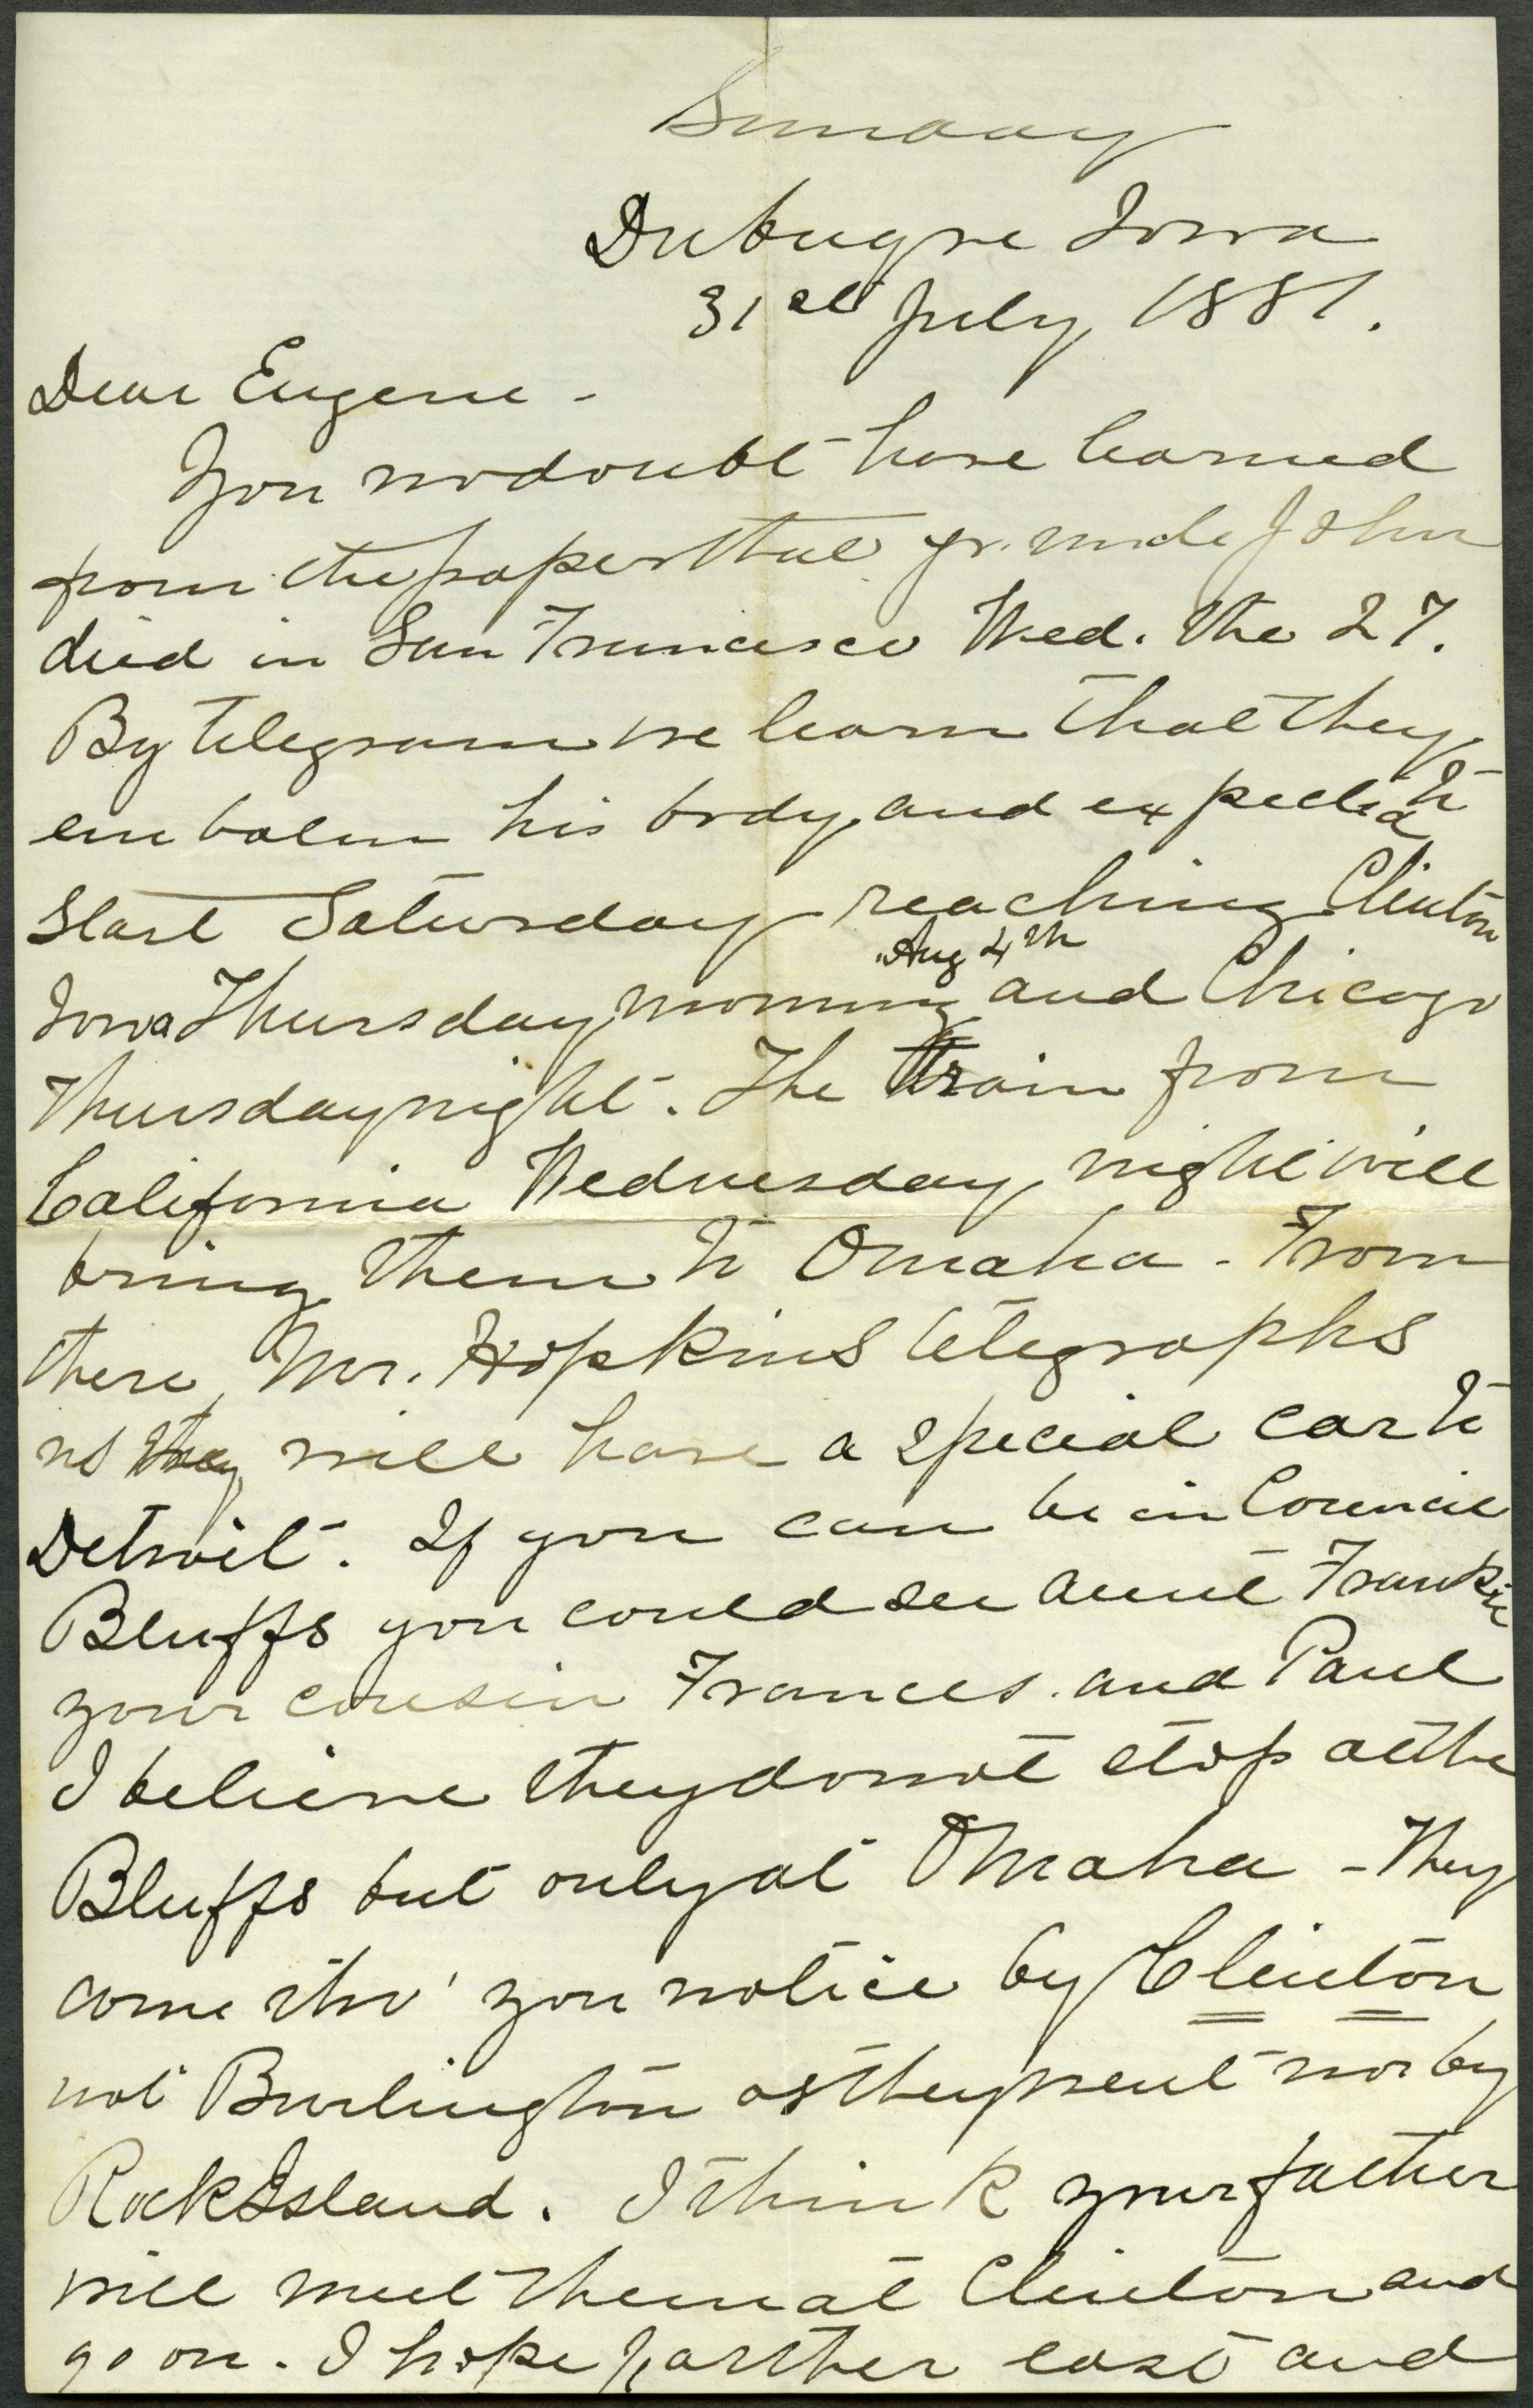 Sunday
Dubuque Iowa
31st July 1881.
Dear Eugene -
You no doubt have learned
from the papers that yr. uncle John
died in San Francisco Wed. the 27.
By telegram we learn that they
embalm his body, and expected to
start Saturday reaching Clinton
Aug 4th
Iowa Thursday morning and Chicago
Thursday night. The train from
California Wednesday night will
bring them to Omaha - From
there, Mr. Hopkins telegraphs
us they will have a special car to
Detroit. If you can be in Council
Bluffs you could see aunt Frankie
your cousin Frances and Paul
I believe they do not stop at the
Bluffs but only at Omaha - They
come tho' you notice by Clinton
not Burlington as they went nor by
Rock Island. I think your father
will meet them at Clinton and
go on. I hope farther east and